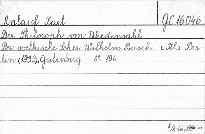 Anlauf Karl GC 16046
Der Philosoph von Wiedensahl
Der völkische Seher Wilhelm Busch. Ber
lin (1939), Gutenberg S° 196